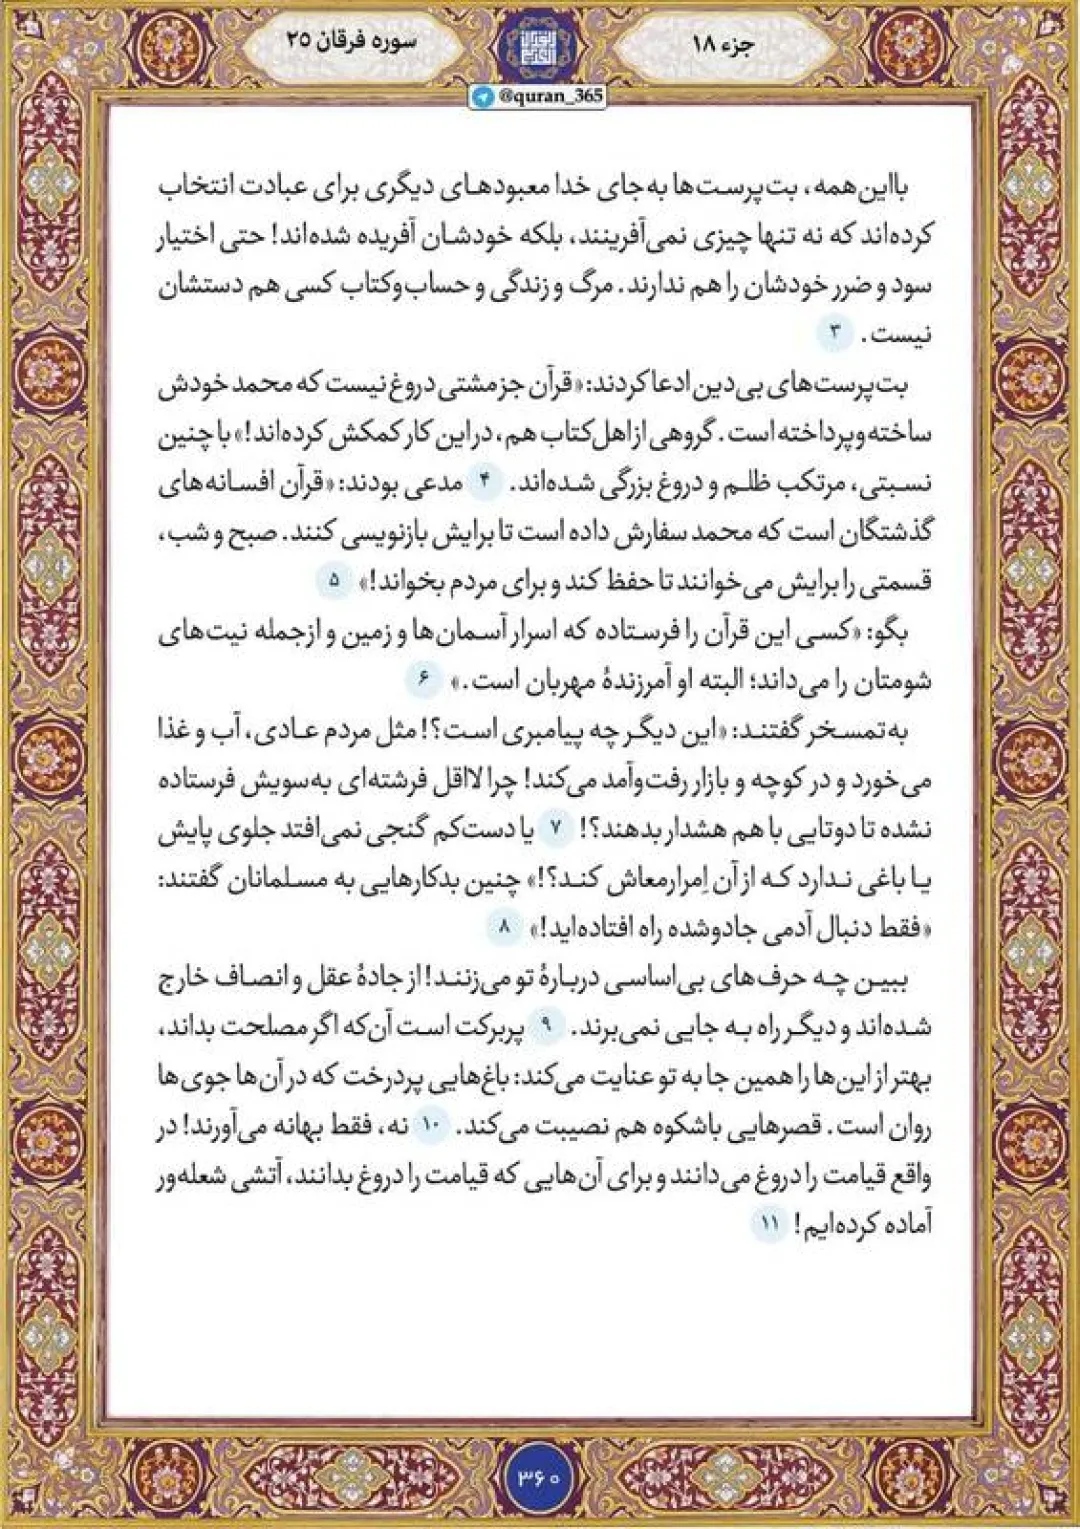 جزء ۱۸
سوره فرقان ۲۵
@quran_365
بااین‌همه، بت‌پرست‌ها به‌جای خدا معبودهای دیگری برای عبادت انتخاب
کرده‌اند که نه تنها چیزی نمی‌آفرینند، بلکه خودشان آفریده شده‌اند! حتی اختیار
سود و ضرر خودشان را هم ندارند. مرگ و زندگی و حساب‌وکتاب کسی هم دستشان
نیست. ۳
بت‌پرست‌های بی‌دین ادعا کردند: «قرآن جز مشتی دروغ نیست که محمد خودش
ساخته‌وپرداخته است. گروهی از اهل‌کتاب هم، در این کار کمکش کرده‌اند!» با چنین
نسبتی، مرتکب ظلم و دروغ بزرگی شده‌اند. ۴ مدعی بودند: «قرآن افسانه‌های
گذشتگان است که محمد سفارش داده است تا برایش بازنویسی کنند. صبح و شب،
قسمتی را برایش می‌خوانند تا حفظ کند و برای مردم بخواند!» ۵
بگو: «کسی این قرآن را فرستاده که اسرار آسمان‌ها و زمین و ازجمله نیت‌های
شومتان را می‌داند؛ البته او آمرزندهٔ مهربان است.» ۶
به‌تمسخر گفتند: «این دیگر چه پیامبری است؟! مثل مردم عادی، آب و غذا
می‌خورد و در کوچه و بازار رفت‌وآمد می‌کند! چرا لااقل فرشته‌ای به‌سویش فرستاده
نشده تا دوتایی با هم هشدار بدهند؟! ۷ یا دست‌کم گنجی نمی‌افتد جلوی پایش
یا باغی ندارد که از آن اِمرارمعاش کند؟!» چنین بدکارهایی به مسلمانان گفتند:
«فقط دنبال آدمی جادوشده راه افتاده‌اید!» ۸
ببین چه حرف‌های بی‌اساسی دربارهٔ تو می‌زنند! از جادهٔ عقل و انصاف خارج
شده‌اند و دیگر راه به جایی نمی‌برند. ۹ پربرکت است آن‌که اگر مصلحت بداند،
بهتر از این‌ها را همین جا به تو عنایت می‌کند: باغ‌هایی پردرخت که در آن‌ها جوی‌ها
روان است. قصرهایی باشکوه هم نصیبت می‌کند. ۱۰ نه، فقط بهانه می‌آورند! در
واقع قیامت را دروغ می‌دانند و برای آن‌هایی که قیامت را دروغ بدانند، آتشی شعله‌ور
آماده کرده‌ایم! ۱۱
۳۶۰